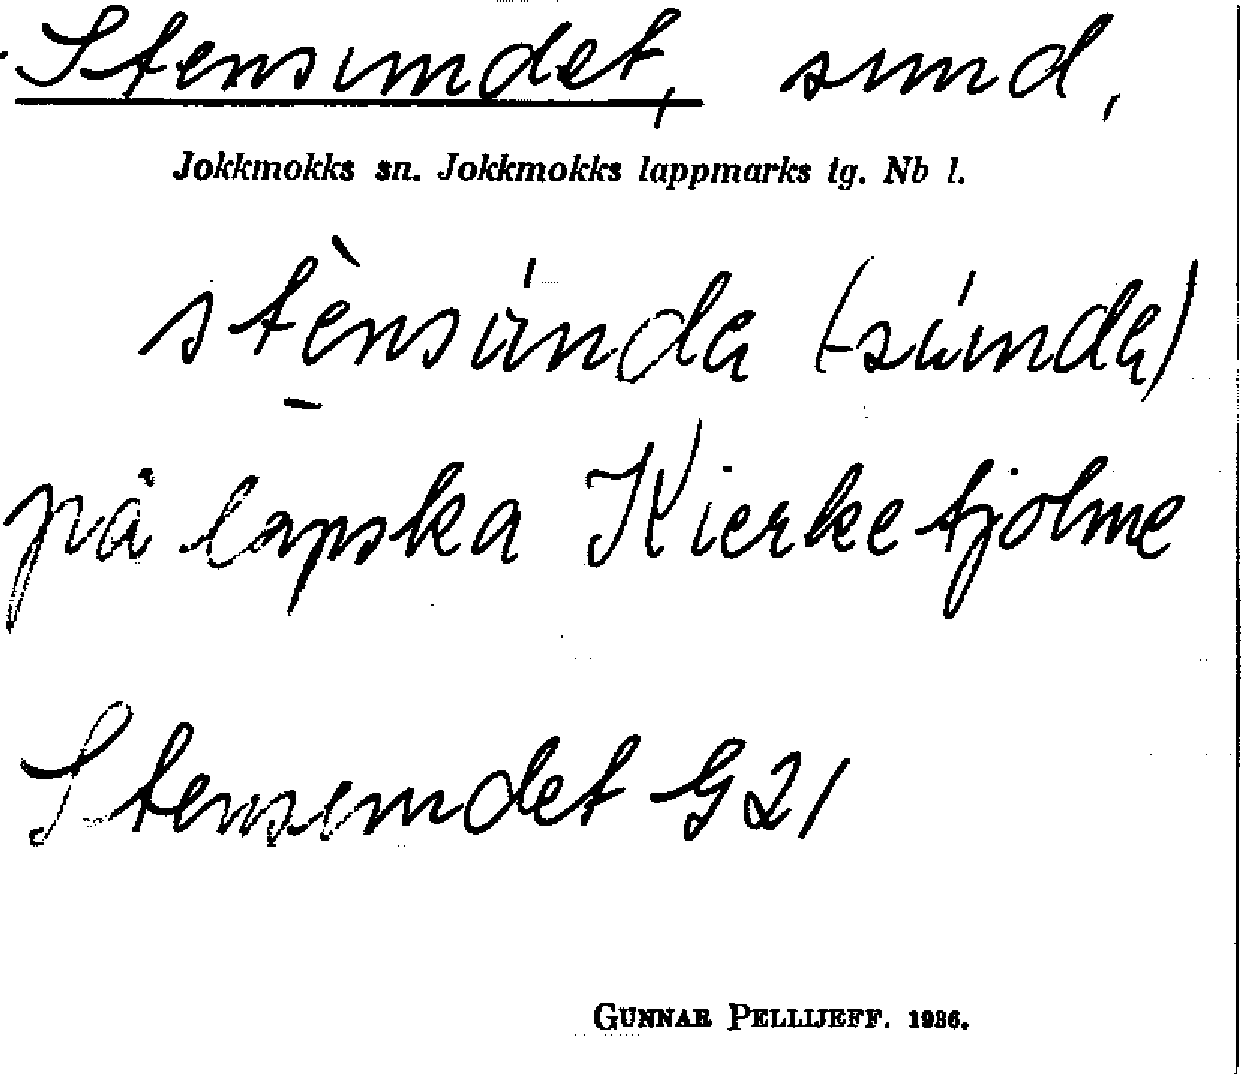 Stensundet, sund,
Jokkmokks sn. Jokkmokks lappmarks tg. Nb l.
stèn̠súnda (-súnda)
på lapska Kierketjolme
Stensundet G21
GUNNAR PELLIJEFF. 1936.